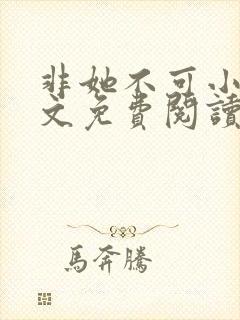 非她不可小
文免費閱讀
馬奔騰